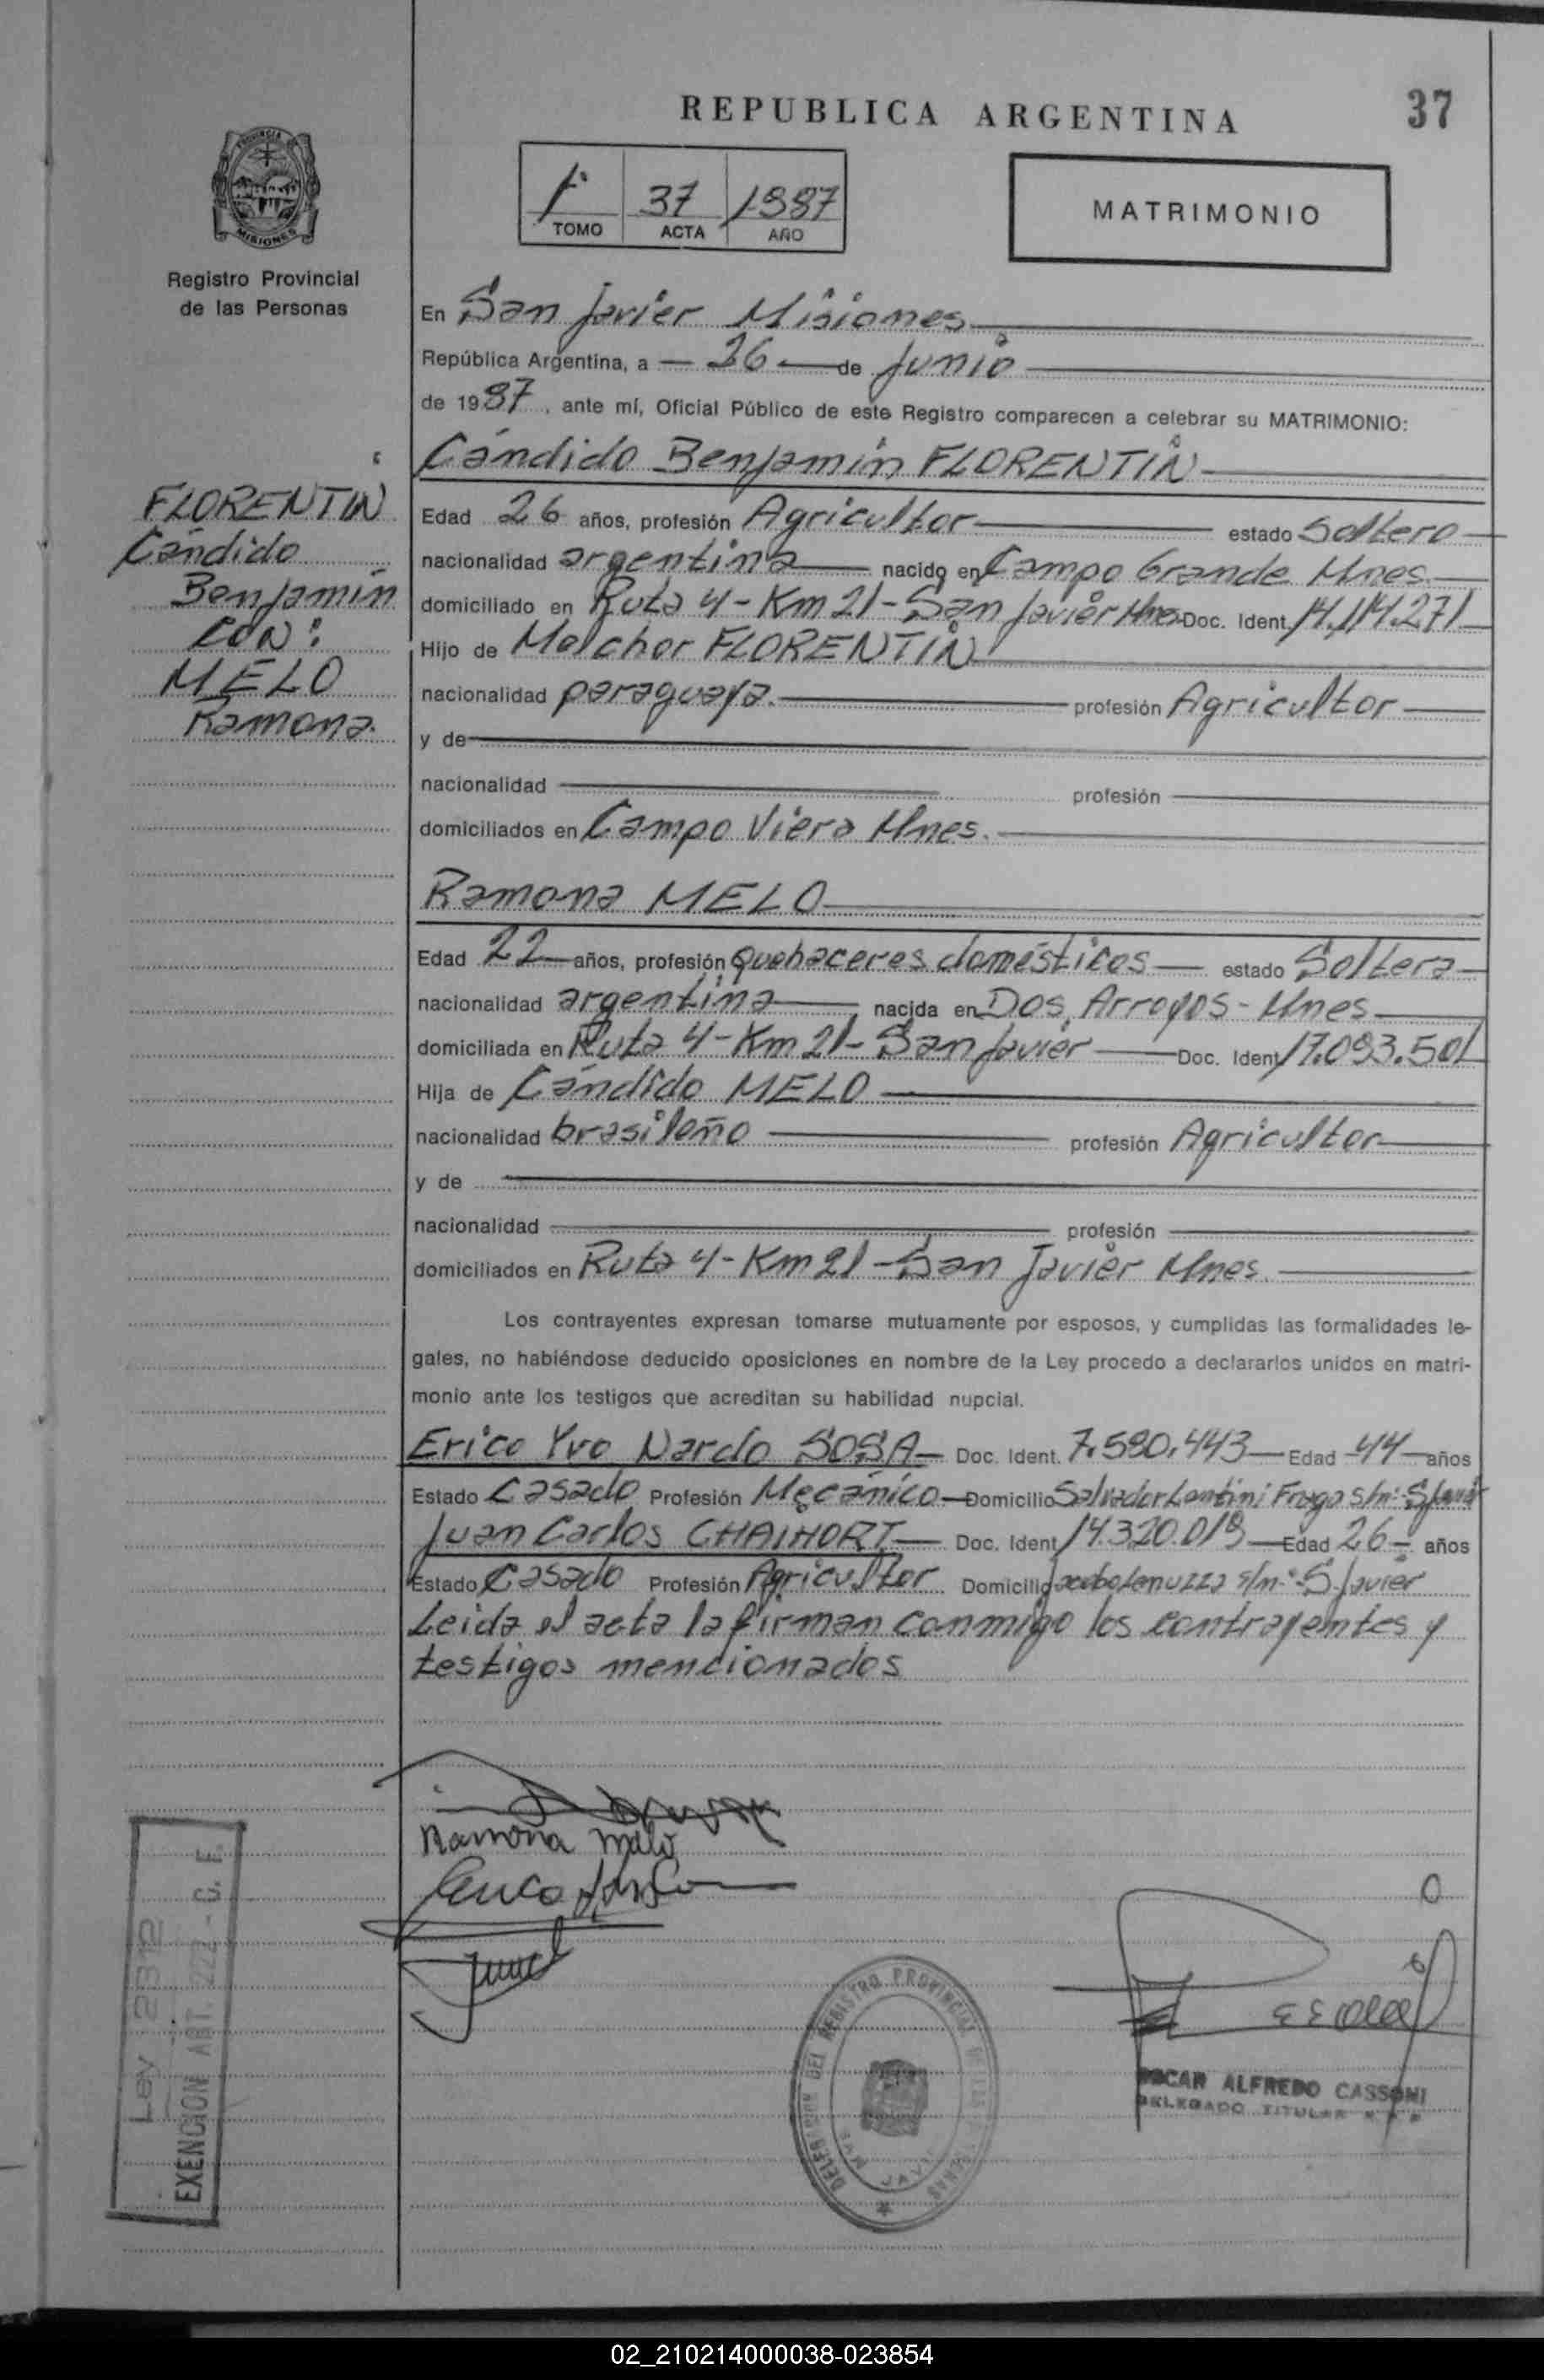 REPUBLICA ARGENTINA
37
PROVINCIA
MISIONES
Registro Provincial
de las Personas
1º 37 1987
TOMO ACTA AÑO
MATRIMONIO
En San Javier Misiones
República Argentina, a - 26 - de Junio
de 1987, ante mí, Oficial Público de este Registro comparecen a celebrar su MATRIMONIO:
Cándido Benjamín FLORENTIN
FLORENTIN
Cándido
Benjamín
CON:
MELO
Ramona.
Edad 26 años, profesión Agricultor estado Soltero
nacionalidad argentina nacido en Campo Grande Mnes.
domiciliado en Ruta 4 - Km 21 - San Javier Mnes. Doc. Ident. 14.114.271
Hijo de Melchor FLORENTIN
nacionalidad paraguaya. profesión Agricultor
y de
nacionalidad profesión
domiciliados en Campo Viera Mnes.
Ramona MELO
Edad 22 años, profesión Quehaceres domésticos estado Soltera
nacionalidad argentina nacida en Dos Arroyos - Mnes.
domiciliada en Ruta 4 - Km 21 - San Javier Doc. Ident. 17.093.501
Hija de Cándido MELO
nacionalidad brasileño profesión Agricultor
y de
nacionalidad profesión
domiciliados en Ruta 4 - Km 21 - San Javier Mnes.
Los contrayentes expresan tomarse mutuamente por esposos, y cumplidas las formalidades le-
gales, no habiéndose deducido oposiciones en nombre de la Ley procedo a declararlos unidos en matri-
monio ante los testigos que acreditan su habilidad nupcial.
Erico Yvo Nardo SOSA Doc. Ident. 7.590.443 Edad 44 años
Estado Casado Profesión Mecánico Domicilio Salvador Lentini Fraga s/nº S. Javier
Juan Carlos Doc. Ident. 14.320.019 Edad 26 años
Estado Casado Profesión Agricultor Domicilio s/nº S. Javier
Leida el acta la firman conmigo los contrayentes y
testigos mencionados
Ramona Melo
Ley 2312
EXENCION ART. 222 - C. F.
DELEGACION DEL REGISTRO PROVINCIAL DE LAS PERSONAS
SAN JAVIER
OSCAR ALFREDO CASSONI
DELEGADO TITULAR R.P.P.
02_210214000038-023854